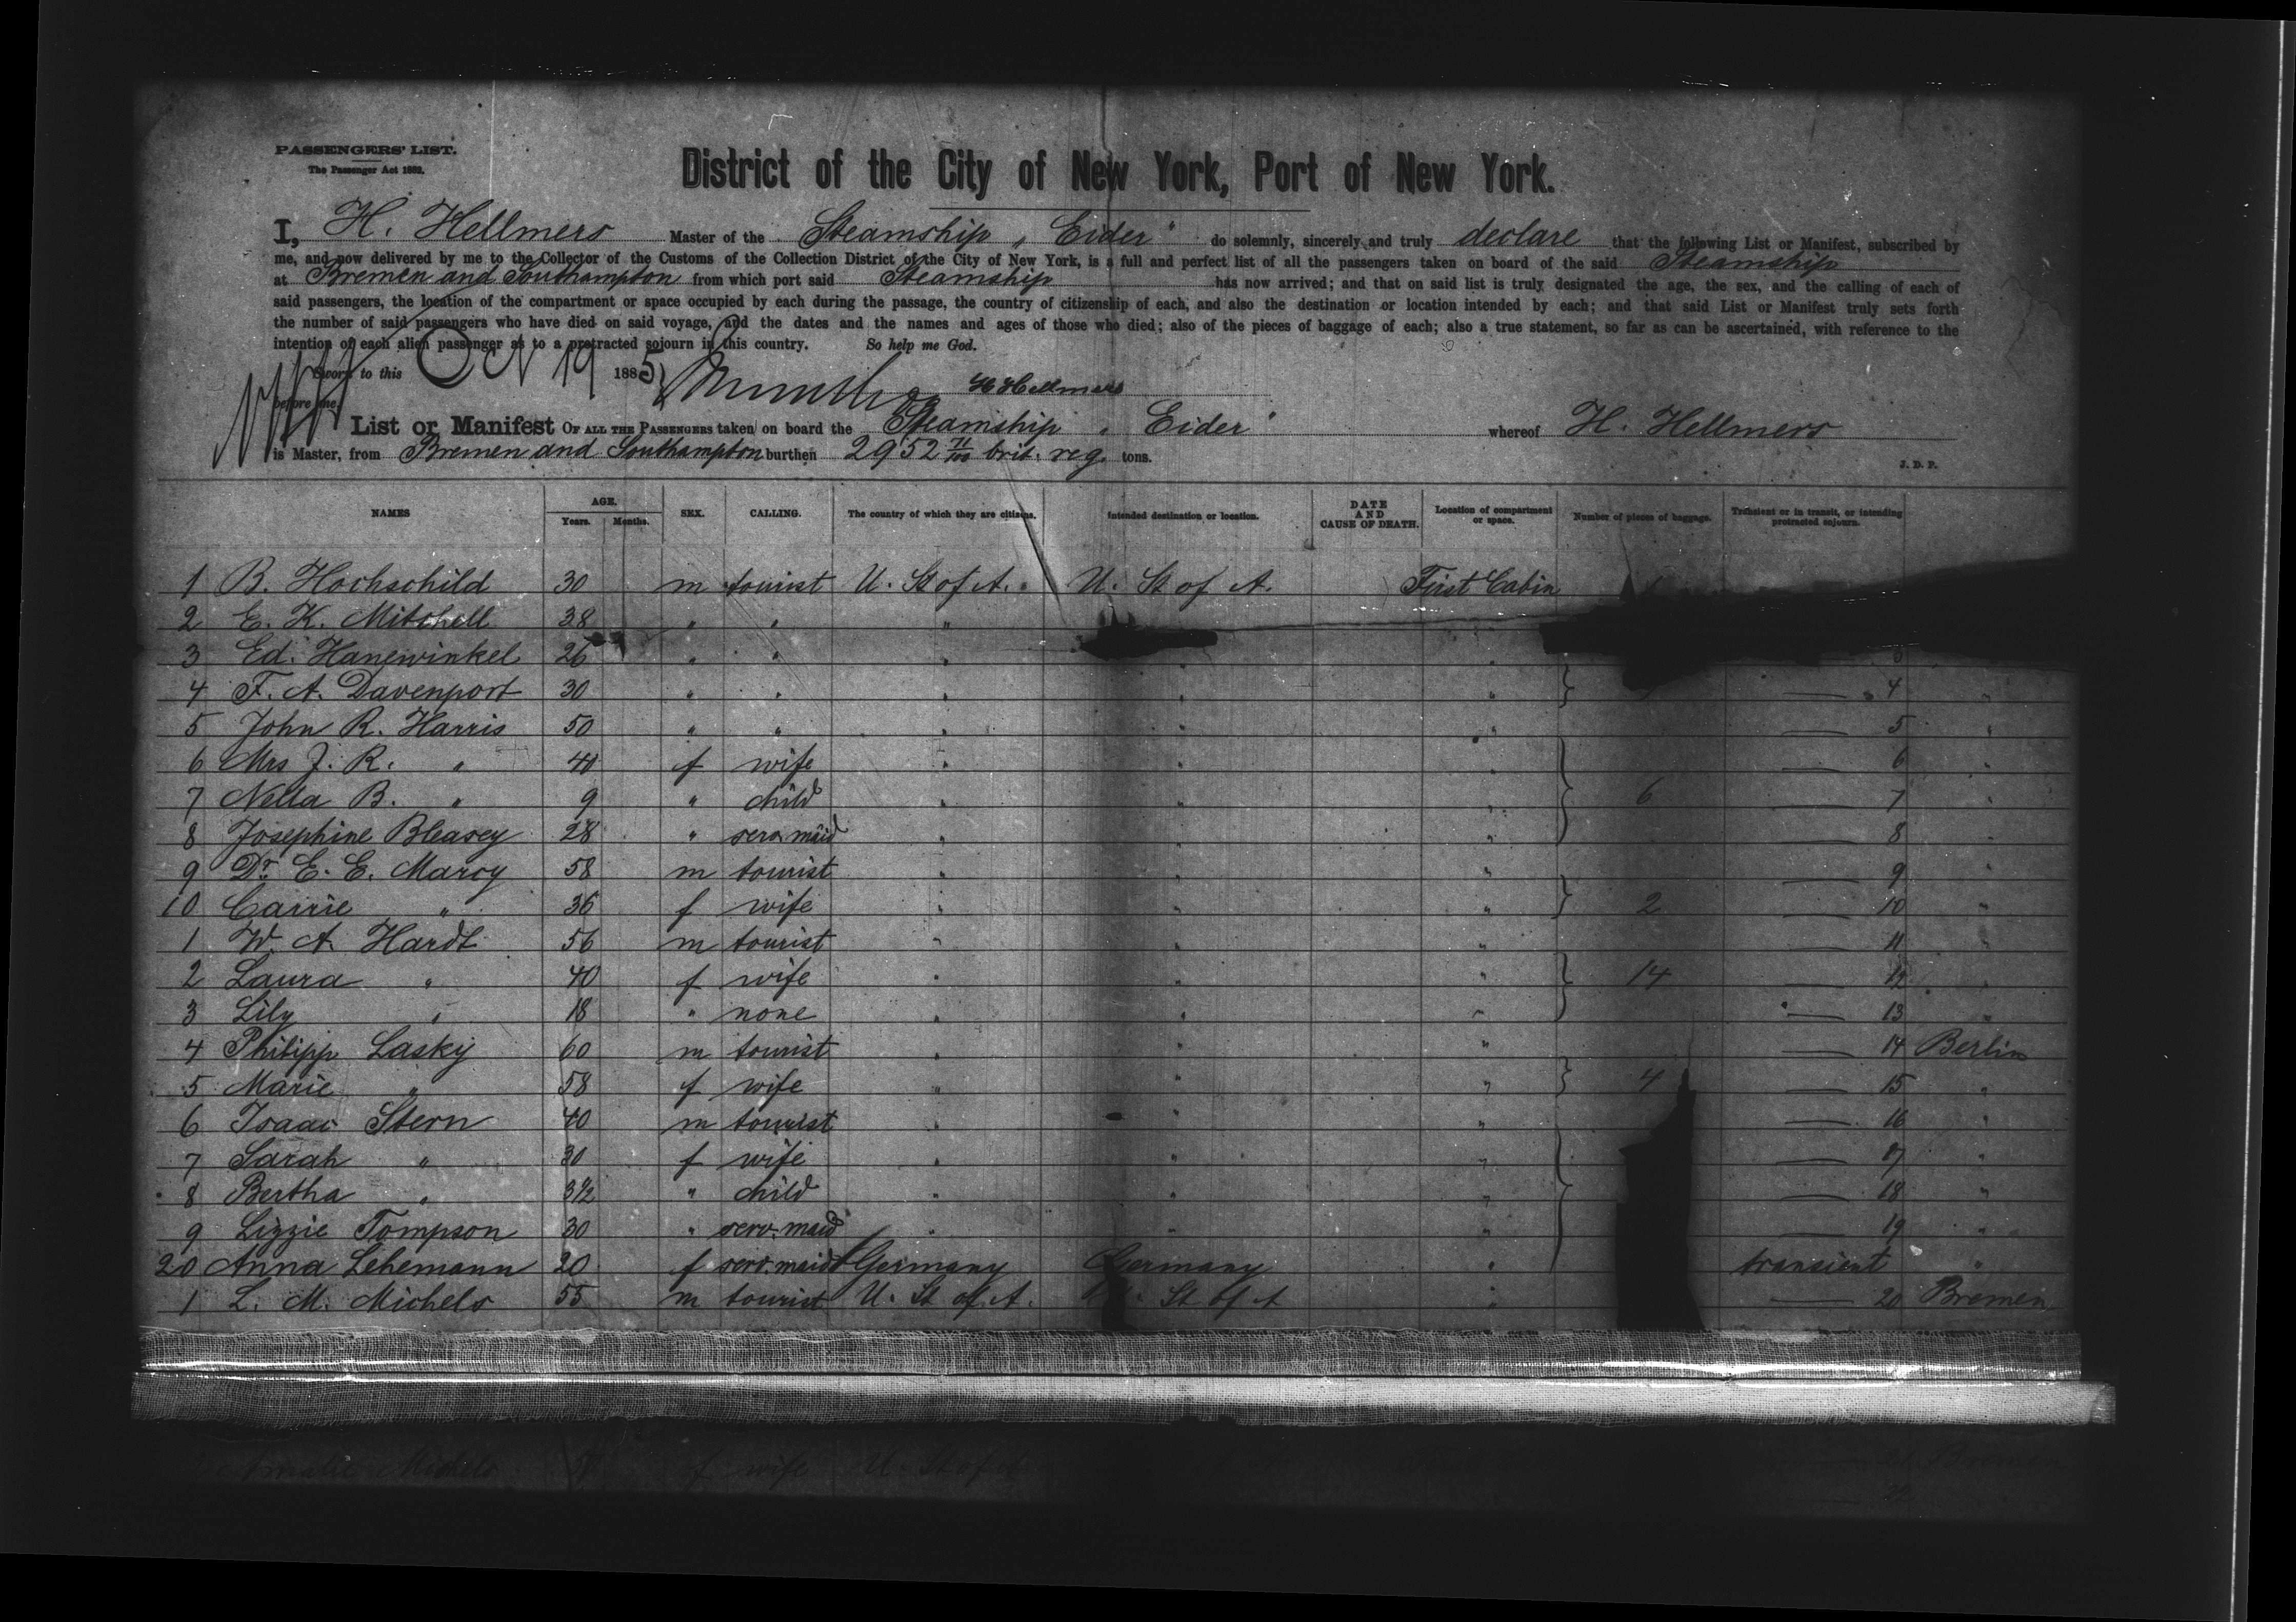 PASSENGERS' LIST.
The Passenger Act 1882.
District of the City of New York, Port of New York.
I, H. Hellmers Master of the Steamship „ Eider " do solemnly, sincerely and truly declare that the following List or Manifest, subscribed by
me, and now delivered by me to the Collector of the Customs of the Collection District of the City of New York, is a full and perfect list of all the passengers taken on board of the said Steamship
at Bremen and Southampton from which port said Steamship has now arrived; and that on said list is truly designated the age, the sex, and the calling of each of
said passengers, the location of the compartment or space occupied by each during the passage, the country of citizenship of each, and also the destination or location intended by each; and that said List or Manifest truly sets forth
the number of said passengers who have died on said voyage, and the dates and the names and ages of those who died; also of the pieces of baggage of each; also a true statement, so far as can be ascertained, with reference to the
intention of each alien passenger as to a protracted sojourn in this country. So help me God.
Sworn to this 19 1885
before me H Hellmers
List or Manifest OF ALL THE PASSENGERS taken on board the Steamship „ Eider " whereof H. Hellmers
is Master, from Bremen and Southampton burthen 2952 71/100 brit. reg. tons.
J. D. P.
NAMES AGE. Years. Months. SEX. CALLING. The country of which they are citizens. Intended destination or location. DATE AND CAUSE OF DEATH. Location of compartment or space. Number of pieces of baggage. Transient or in transit, or intending protracted sojourn.
1 B. Hochschild 30 m tourist U. St of A. U. St of A. First Cabin
2 E. K. Mitchell 38 " " "
3 Ed. Hanewinkel 26 " " " " " 3
4 F. A. Davenport 30 " " " " " — 4 "
5 John R. Harris 50 " " " " " — 5 "
6 Mrs J. R. " 40 f wife " " " — 6 "
7 Nella B. " 9 " child " " " 6 — 7 "
8 Josephine Bleasey 28 " serv. maid " " " — 8 "
9 Dr. E. E. Marcy 58 m tourist " " " — 9 "
10 Carrie " 36 f wife " " " 2 — 10 "
1 W. A. Hardt 56 m tourist " " " — 11 "
2 Laura " 40 f wife " " " 14 — 12 "
3 Lily " 18 " none " " " — 13 "
4 Philipp Lasky 60 m tourist " " " — 14 Berlin
5 Marie " 58 f wife " " " 4 — 15 "
6 Isaac Stern 40 m tourist " " " — 16 "
7 Sarah " 30 f wife " " " — 17 "
8 Bertha " 3½ " child " " " — 18 "
9 Lizzie Tompson 30 " serv. maid " " " — 19 "
20 Anna Lehemann 20 f serv. maid Germany Germany " transient "
1 L. M. Michels 55 m tourist U. St of A. U. St of A " — 20 Bremen
Michels f wife U. St of A Bremen